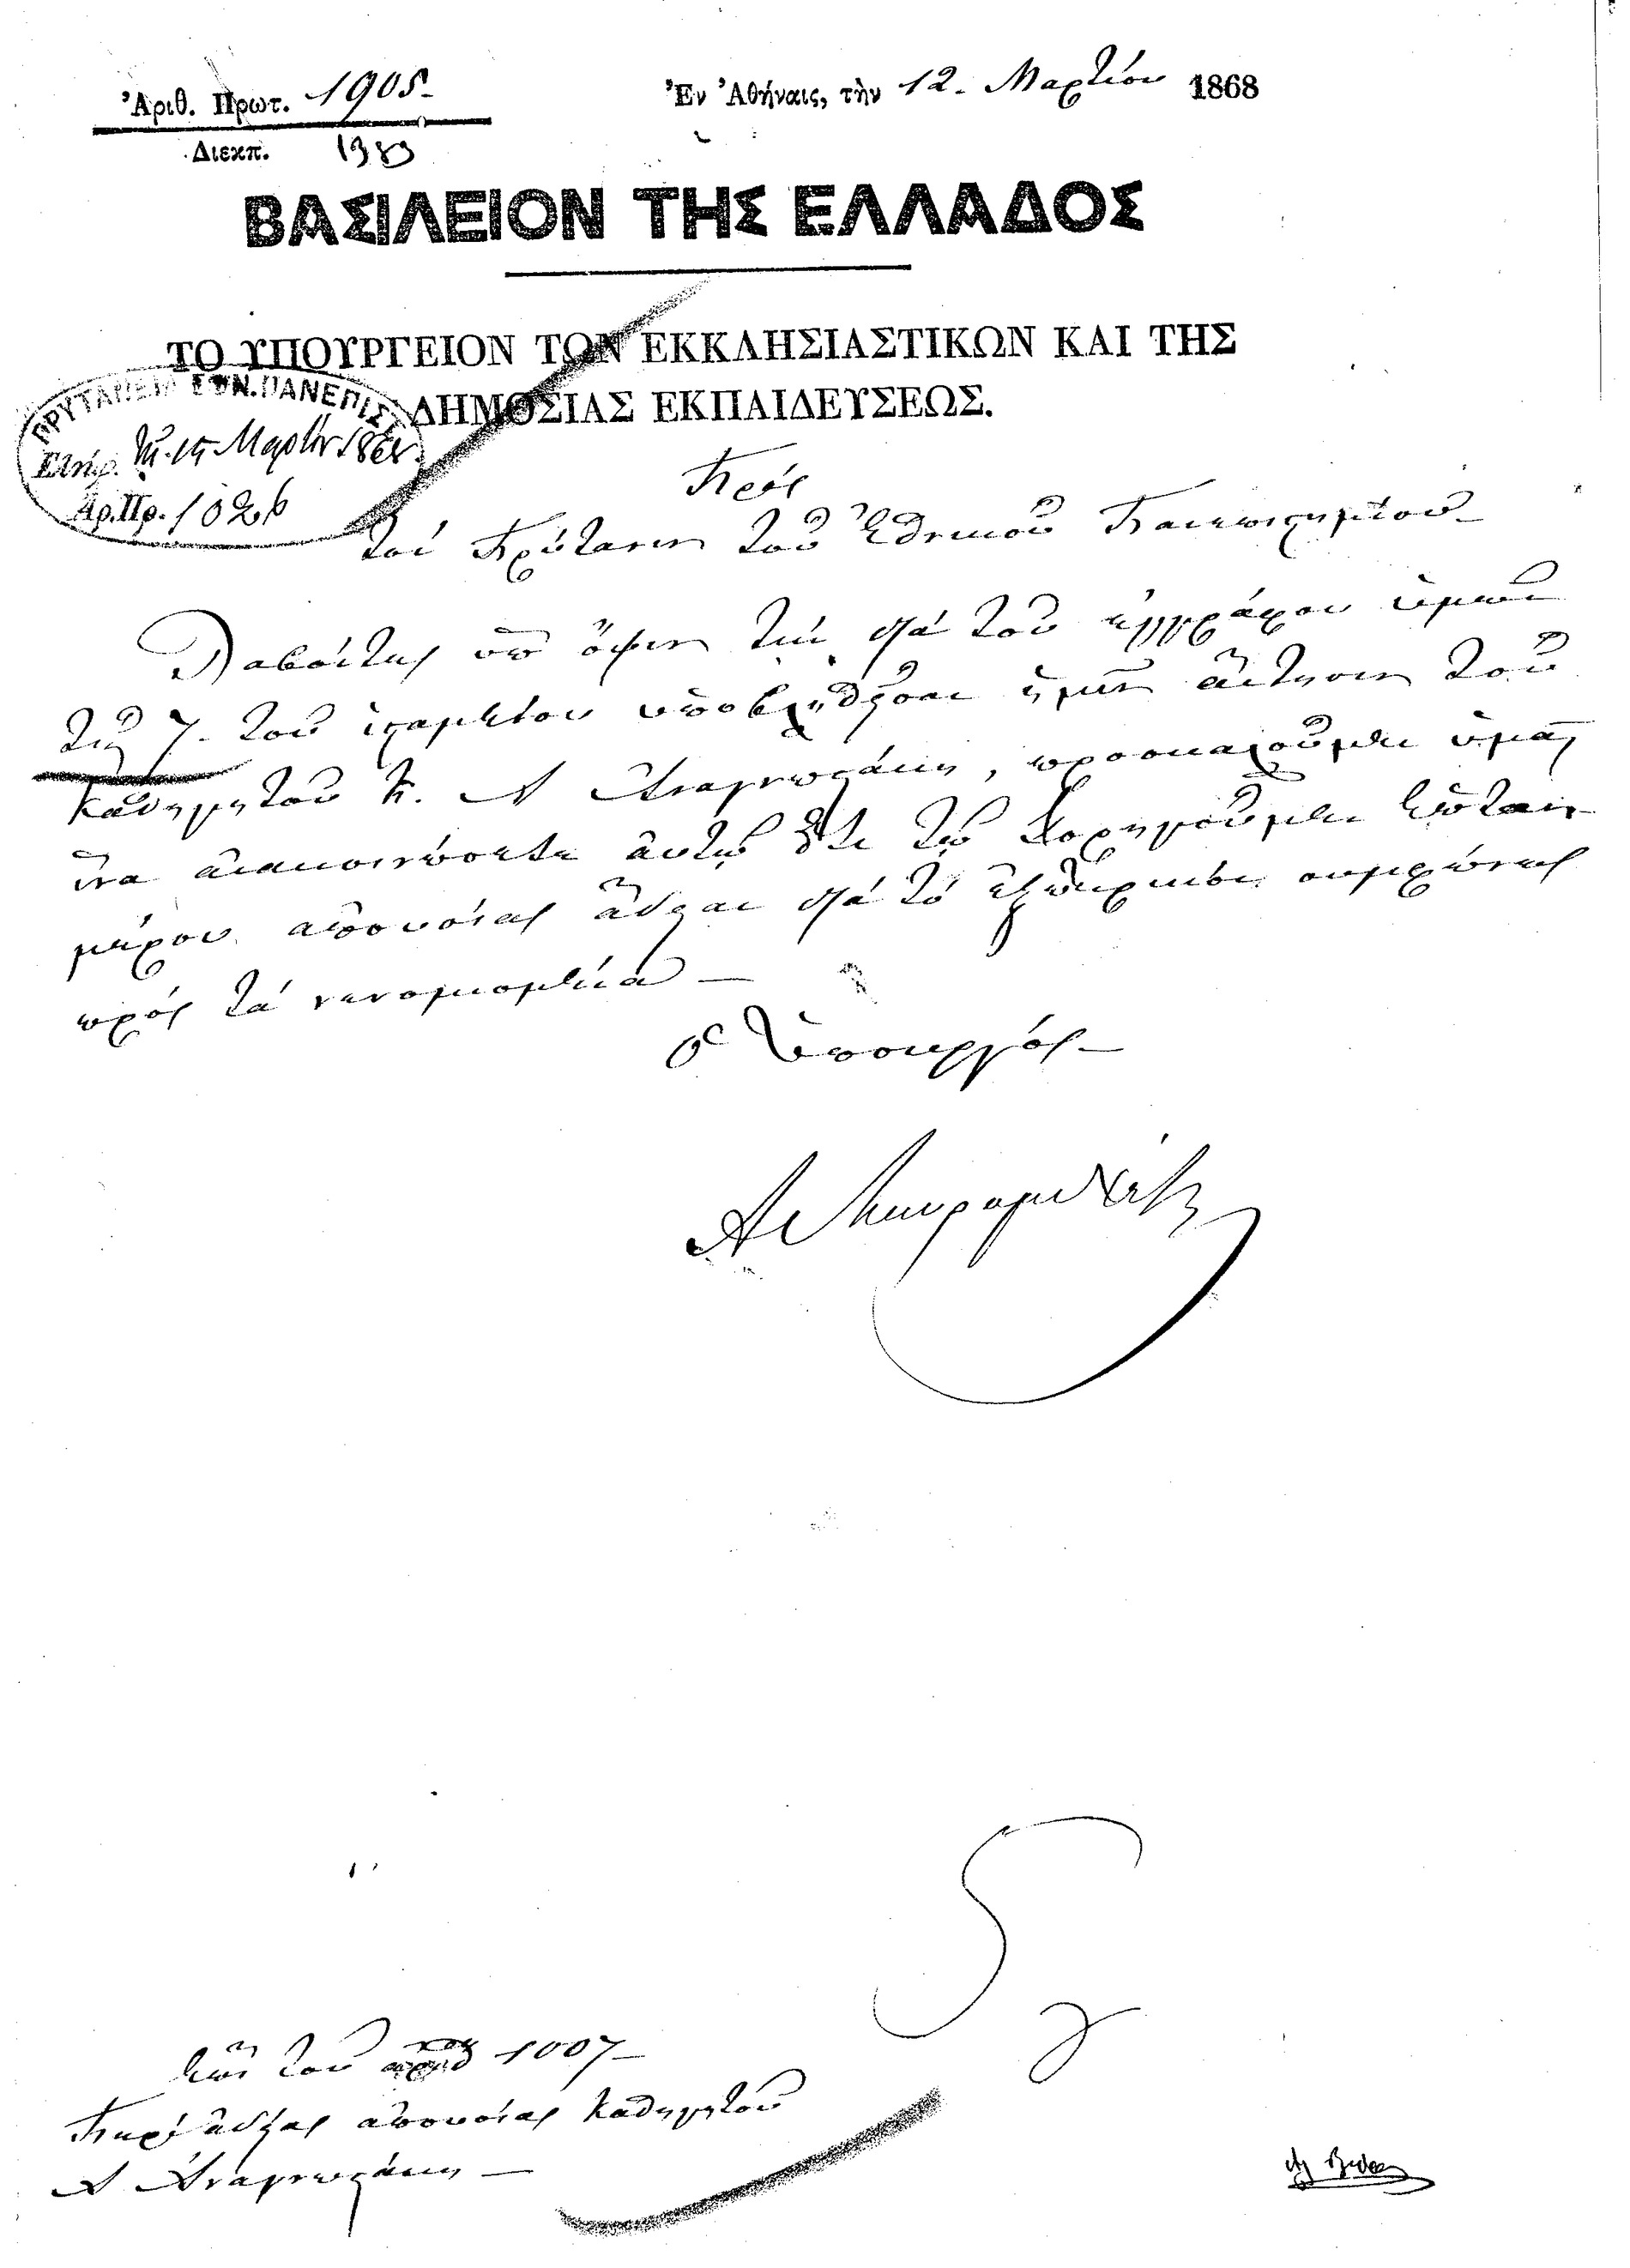 Ἀριθ. Πρωτ. 1905-
Διεκπ. 1989
Ἐν Ἀθήναις, τὴν 12. Μαρτίου 1868
ΒΑΣΙΛΕΙΟΝ ΤΗΣ ΕΛΛΑΔΟΣ
ΤΟ ΥΠΟΥΡΓΕΙΟΝ ΤΩΝ ΕΚΚΛΗΣΙΑΣΤΙΚΩΝ ΚΑΙ ΤΗΣ
ΔΗΜΟΣΙΑΣ ΕΚΠΑΙΔΕΥΣΕΩΣ.
ΠΡΥΤΑΝΕΙΑ ΕΘΝ. ΠΑΝΕΠΙΣ
Εἰσήχ. τῇ 15 Μαρτίου 1868
Ἀρ. Πρ. 1026
Πρός
τόν Πρύτανιν τοῦ Ἐθνικοῦ Πανεπιστημίου-
Λαβόντες ὑπ' ὄψιν τήν διά τοῦ ἐγγράφου ὑμῶν
τῆς 7. τοῦ ἱσταμένου ὑποβληθεῖσαν ἡμῖν αἴτησιν τοῦ
Καθηγητοῦ Κ. Α Ἀναγνωστάκη, προσκαλοῦμεν ὑμᾶς
ἵνα ἀνακοινώσητε αὐτῷ ὅτι τῷ χορηγοῦμεν ἑπτάμη-
νον ἀπουσίας ἄδειαν διά τό ἐξωτερικόν συμφώνως
πρός τά νενομισμένα -
ὁ Ὑπουργός-
Α Μαυρομιχάλη
ἐπί τοῦ 1007-
Περί ἀδείας ἀπουσίας Καθηγητοῦ
Α Ἀναγνωστάκη -